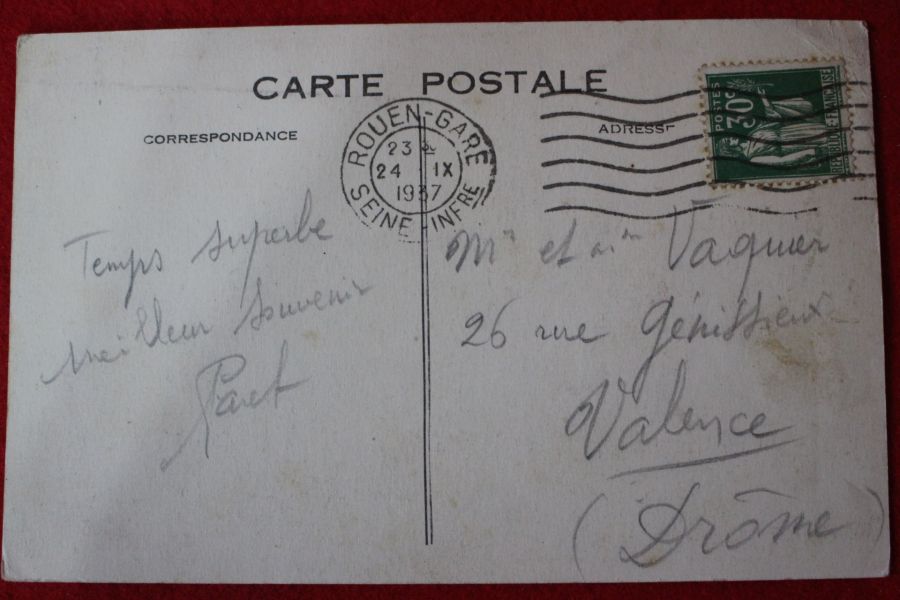 CARTE POSTALE
CORRESPONDANCE
ADRESSE
ROUEN-GARE
23
24 IX
1937
SEINE-INFRE
POSTES
30c
Temps superbe
meilleur souvenir
Mr et Mme Vaguier
26 rue Génissieux
Valence
(Drôme)